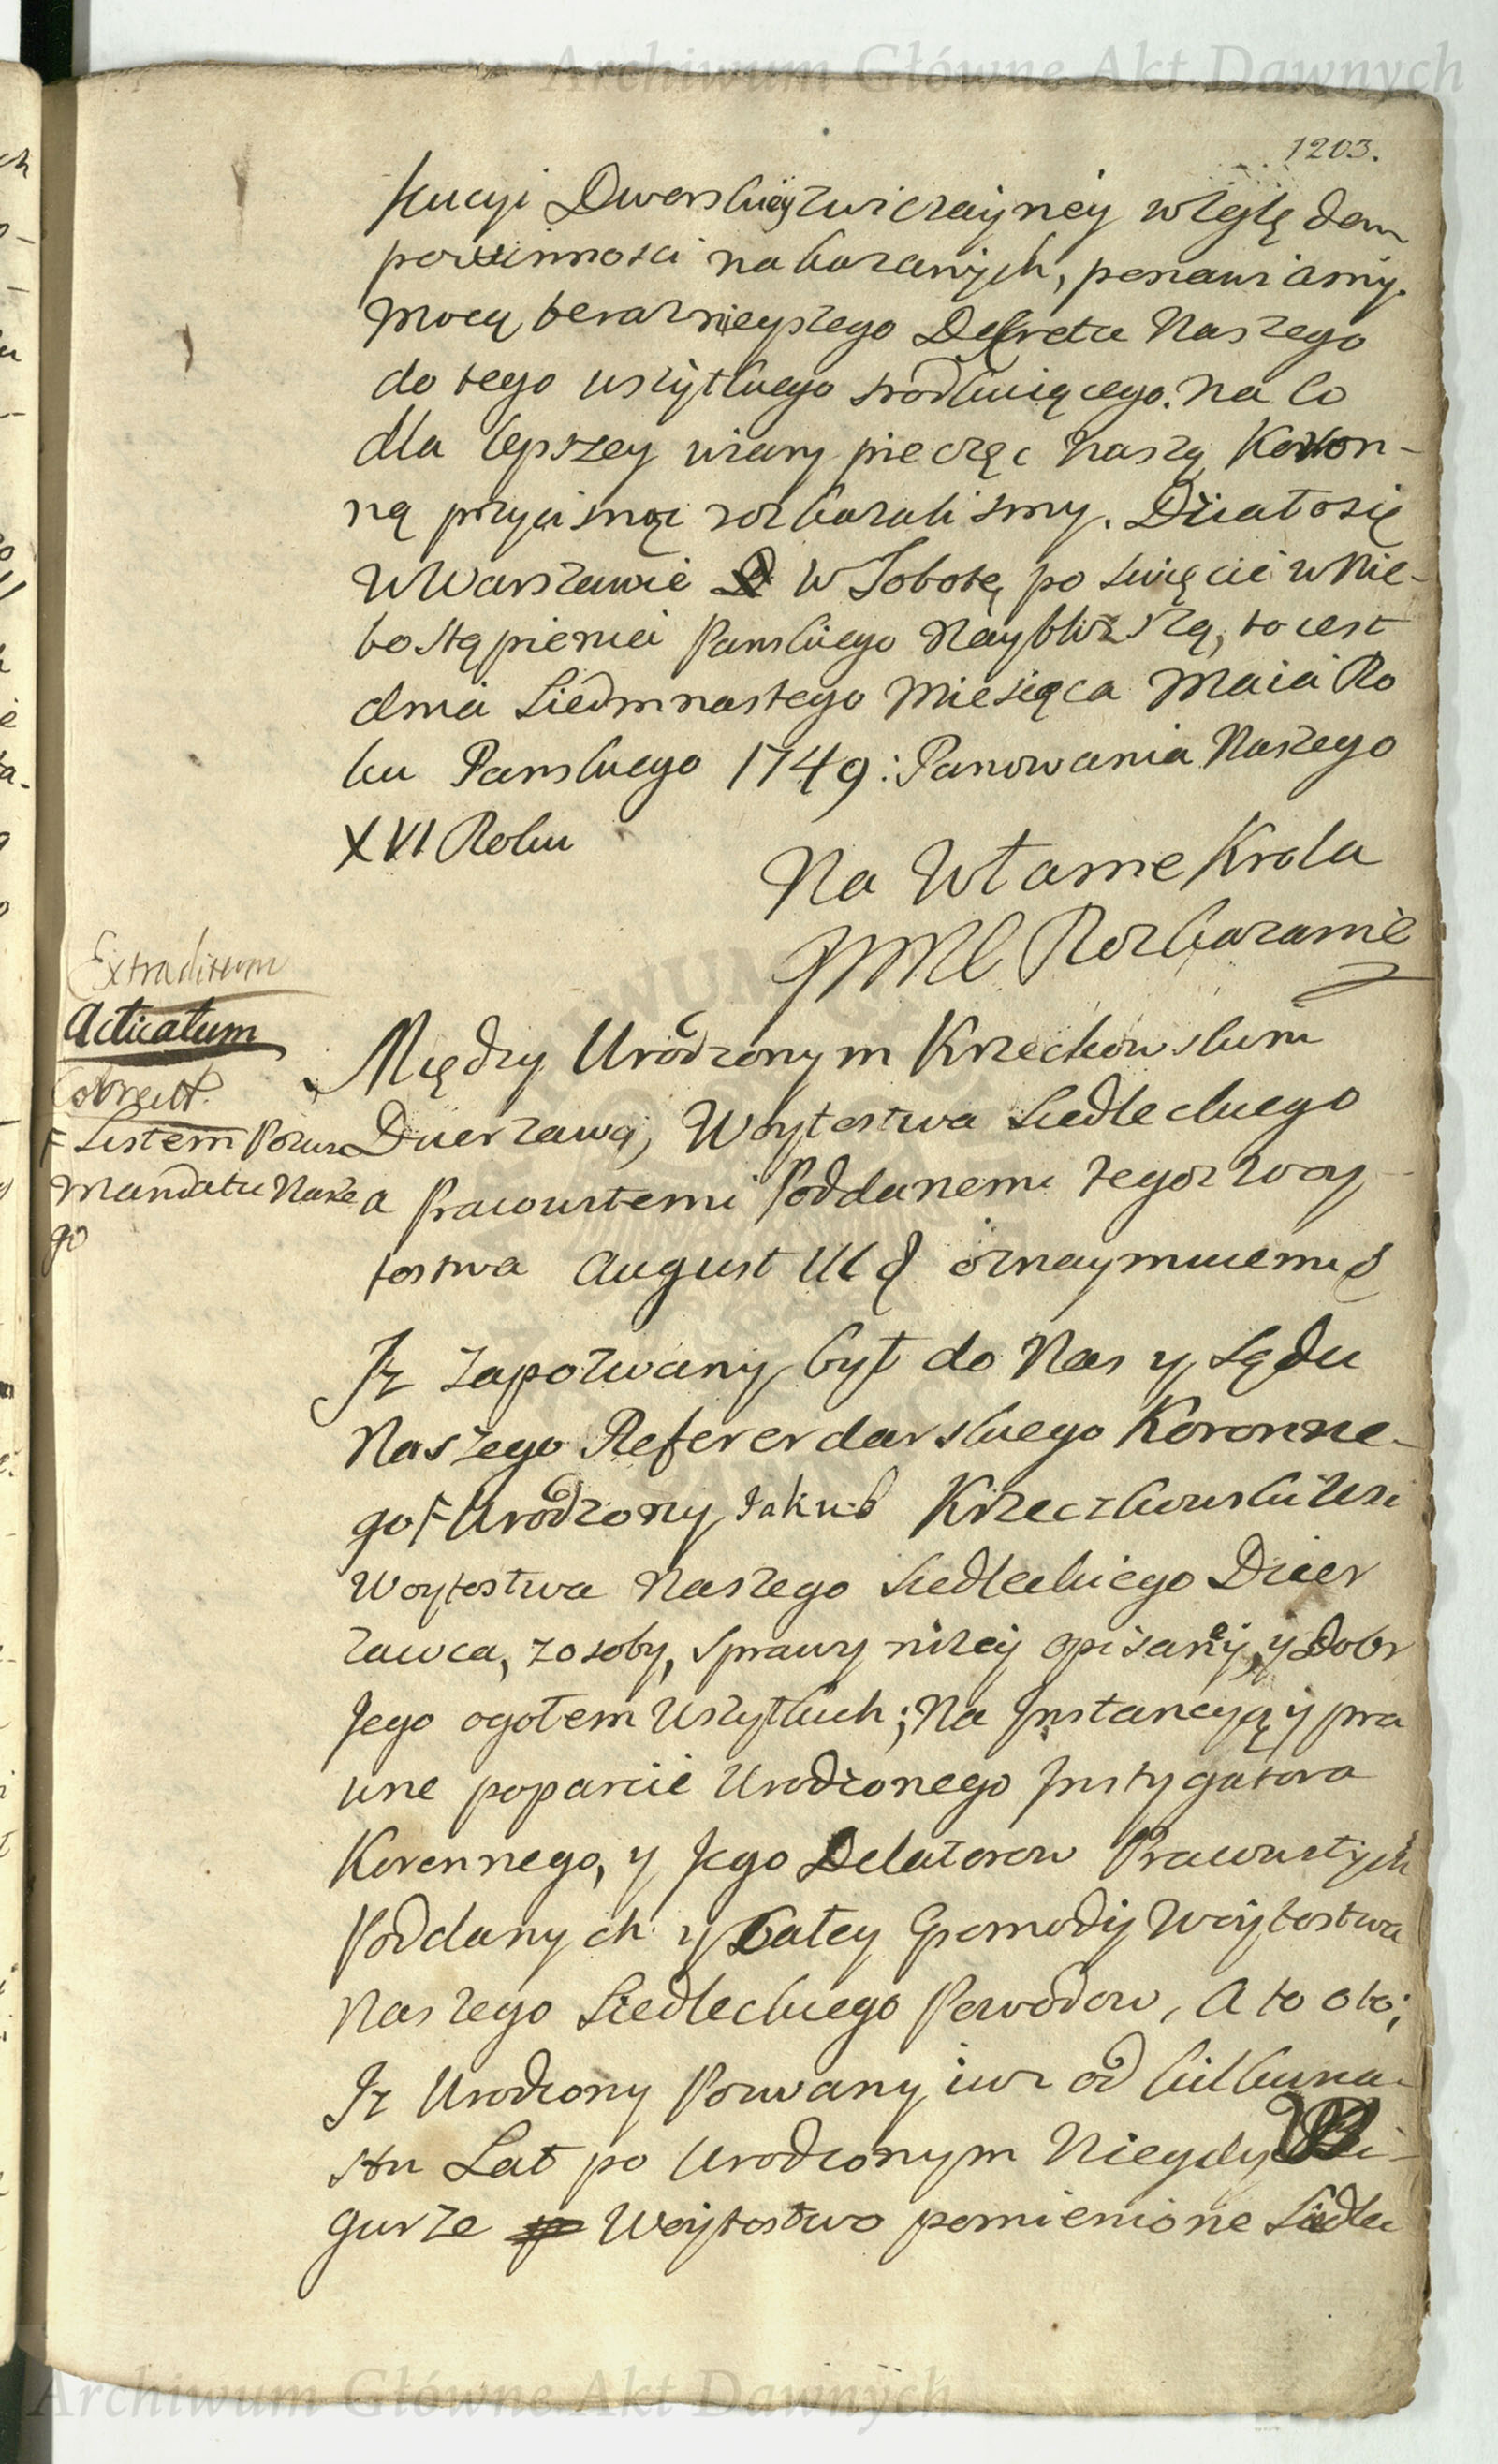 Archiwum Główne Akt Dawnych
1203.
kucyi Dworskiey zwiczayney względem
powinnosci nakazanych, ponawiamy.
Mocą teraznieyszego Dekretu Naszego
do tego wszytkiego srodkuiącego. Na co
dla lepszey wiary pieczęc Naszą Koron-
ną przycisnąc rozkazalismy. Działo się
w Warszawie w Sobotę po swięcie w Nie-
bostąpienia Panskiego Nayblizszą, to iest
dnia Siedmnastego Miesiąca Maia Ro
ku Panskiego 1749: Panowania Naszego
XVI Roku
Na Własne Krola
JMCI Rozkazanie
Extraditum
Acticatum
Correct.
Między Urodzonym Krzeckowskim
Dzierzawcą, Woytostwa Siedleckiego
a Pracowitemi Poddanemi tegoz Woy-
tostwa August III oznaymuiemy
Iz zapozwany był do Nas y Sądu
Naszego Referendarskiego Koronne-
go F Urodzony Jakub Krzeczkowski Wsi
F Listem Pozwu
Mandatu Nasze
go
Woytostwa Naszego Siedleckiego Dzier
zawca, z osoby, sprawy nizey opisaney, y Dobr
Jego ogołem Wszytkich; Na Instancyą y pra
wne poparcie Urodzonego Instygatora
Koronnego, y Jego Delatorow Pracowitych
Poddanych y Całey Gromady Woytostwa
Naszego Siedleckiego Powodow, A to o to;
Iz Urodzony Pozwany iuz od kilkuna-
stu Lat po Urodzonym Niegdy
gurze Woytostwo pomienione Siedlec
Archiwum Główne Akt Dawnych